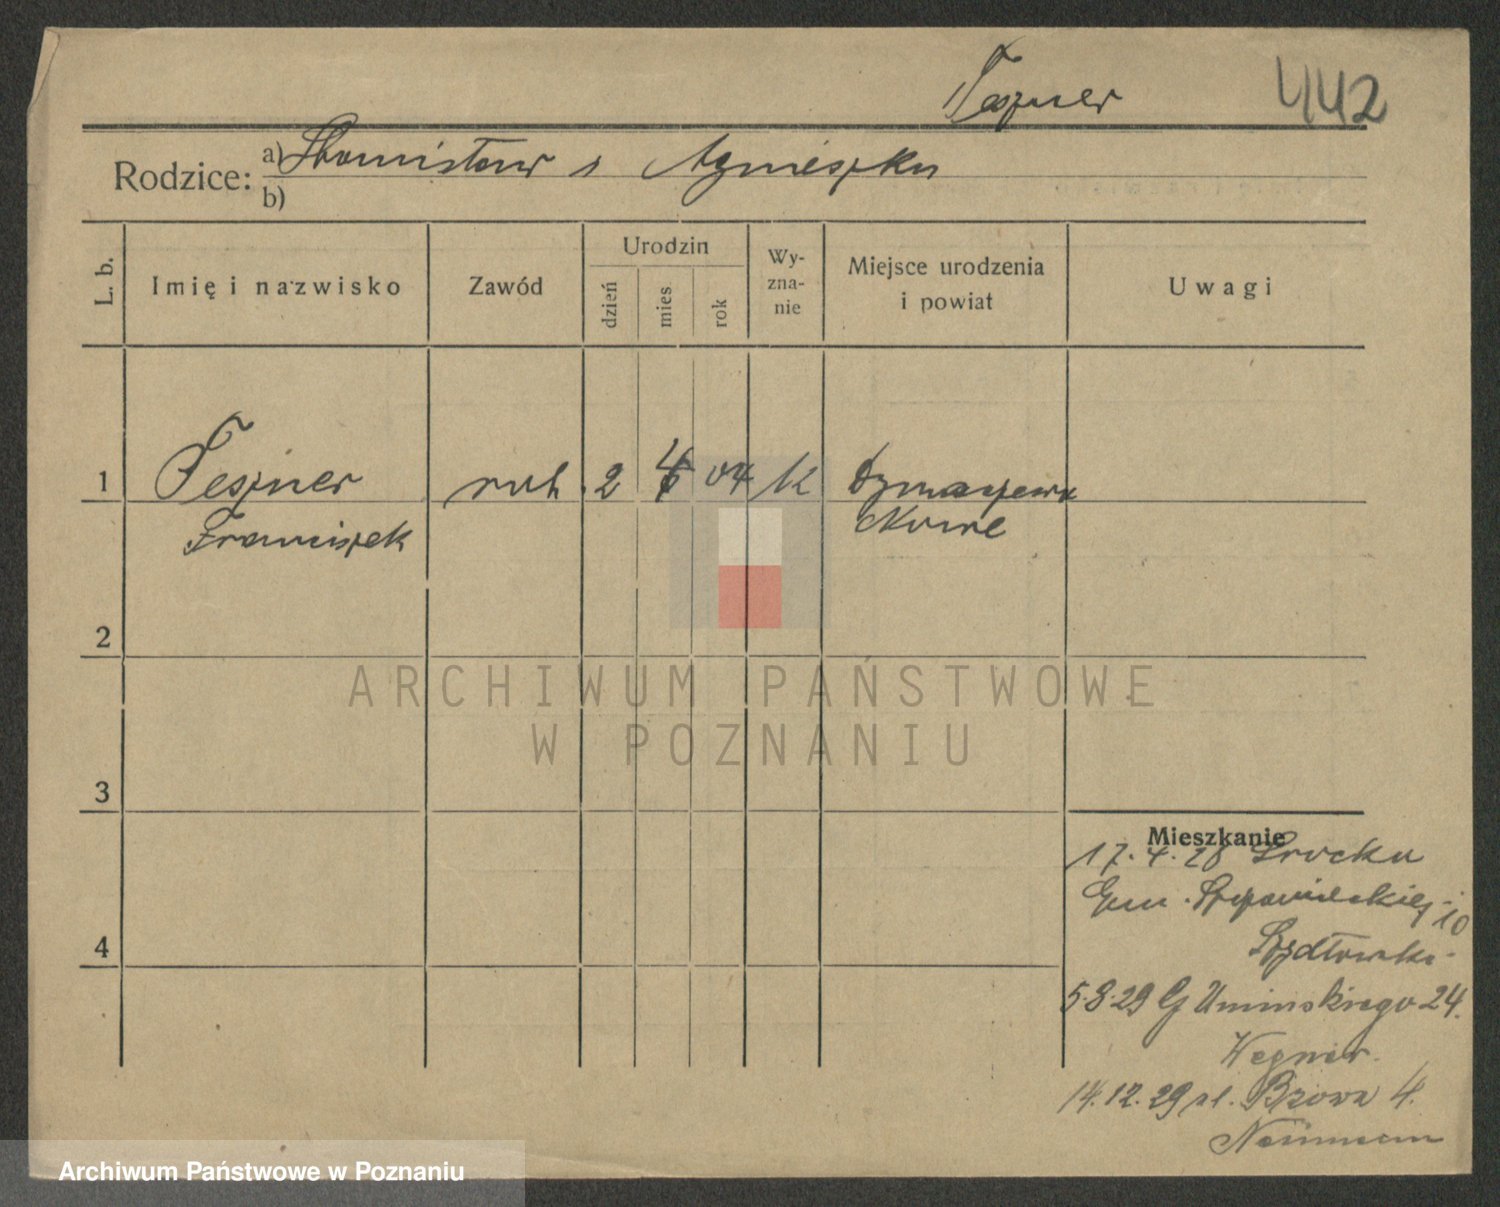 Teszner 442
Rodzice: a) Stanisław i Agnieszka
b)
L. b. Imię i nazwisko Zawód Urodzin dzień mies. rok Wyznanie Miejsce urodzenia i powiat Uwagi
1 Teszner rob. 2 4 04 k
Franciszek Nowe
2
ARCHIWUM PAŃSTWOWE
W POZNANIU
3
Mieszkanie
17.4.28 Srocka
10
4
5.8.29 G Umińskiego 24.
Wegner.
14.12.29 ul. Bzowa 4.
Neumann
Archiwum Państwowe w Poznaniu